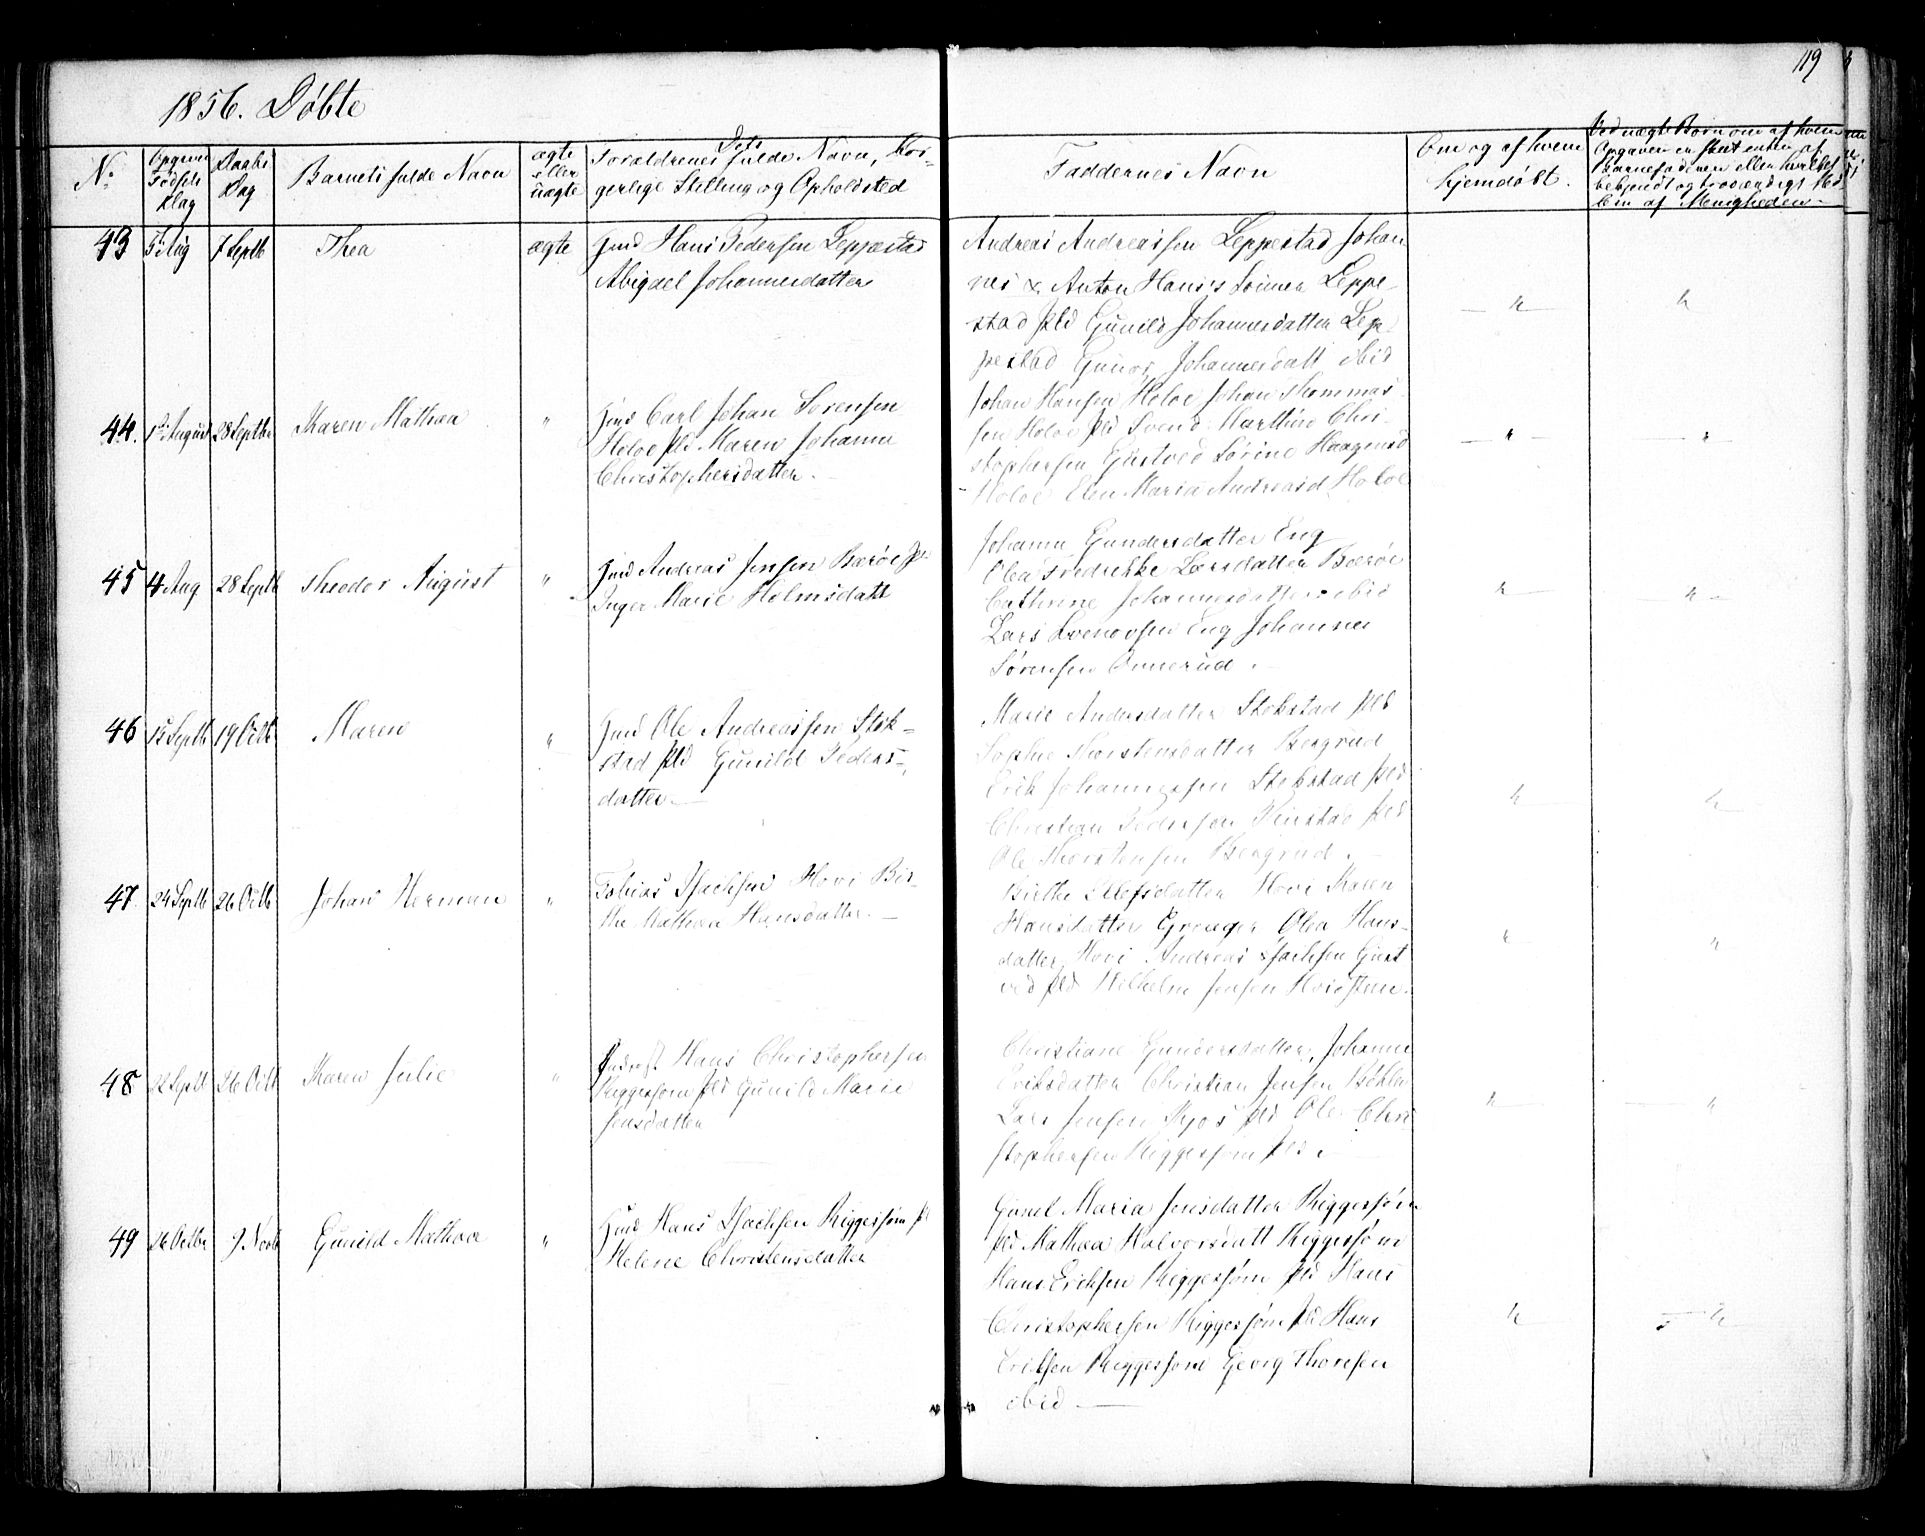 119
1856. Døbte
No
Opgivne Fødsels Dag
Daabs Dag
Barnets fulde Navn
ægte eller uægte
Forældrenes fulde Navn, Bor-
gerlige Stilling og Opholdsted
Faddernes Navn
Om og af hvem
hjemdøbt.
Ved uægte Børn om af hvem
Opgaven er skeet enten af
Barnefaderen eller hvilket
bekjendt og troværdigt Med
lem af Menigheden
43 5 Aug 7 Septb Thea ægte Gmd Hans Pedersen Leppestad
Abigael Johannesdatter
Andreas Andreassen Leppestad Johan
nes & Anton Hans's Sønner Leppe-
stad pld Gunild Johannesdatter Lep-
pestad Johannesdatt ibid
44. 1st August 28 Septbr Karen Mathea " Gmd Carl Johan Sørensen
Holoe pld Maren Johanne
Christophersdatter.
Johan Hansen Holoe Johan Thommas
sen Holoe pld Svend Marthin Chri-
stophersen Gustved Sørine Haagensd
Holoe Elen Maria Andreasd Holoe
45 4 Aug 28 Septb Theodor August " Gmd Andreas Jensen Bærøe pl
Inger Marie Holmsdatt
Johanne Gundersdatter Eng
Olea Fredrikke Larsdatter Bærøe
Cathrine Johannesdatter ibid
Lars Svendsen Eng Johannes
Sørensen Onnerud.
46 15 Septb 19 Octb Maren " Gmd Ole Andreassen Stok-
stad pld Gunild Peders-
datter.
Marie Andersdatter Stokstad pld
Sophie Thorstensdatter Bergrud
Erik Johannessen Stokstad pld
Christian Pedersen pld
Ole Thorstensen Bergrud.
47. 24 Septb 26 Octb Johan Herman " Tobias Isachsen Hovi Bir-
the Mathea Hansdatter.
Birthe Olefsdatter Hovi Karen
Hansdatter Olea Hans-
datter Hovi Andreas Isachsen Gust
ved pld Wilhelm Jensen
48 22 Septb 26 Octb Karen Julie " Hans Christophersen
Riggessøm pld Gunild Marie
Jensdatter
Christiane Gundersdatter, Johanne
Eriksdatter Christian Jensen
Lars Jensen Kjos pld Ole Chri
stophersen Riggessøm pld.
49 26 Octbr 9 Novb Gunild Mathea " Gmd Hans Isachsen Riggessøm pl
Helene Christensdatter
Gunil Maria Jensdatter Riggessøm
pld Mathea Halvorsdatt Riggessøm
Hans Eriksen Riggessøm pld Hans
Christophersen Riggessøm pld Hans
Eriksen Riggessøm Georg Thoresen
ibid